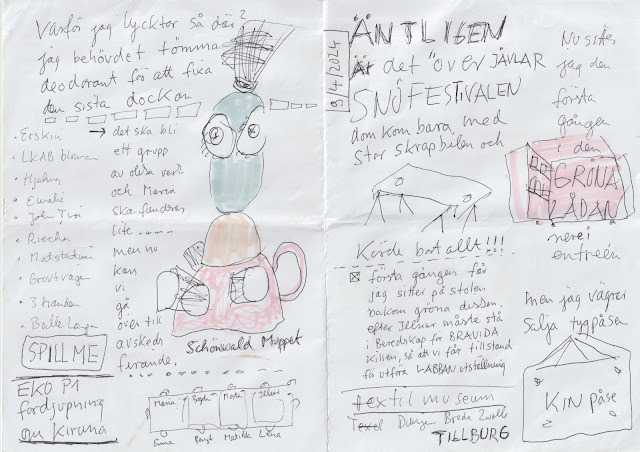 Varför jag lycktar så där?
jag behövdet tömma
deodorant för att fixa
den sista dockan
• Erskin
• LKAB
• Hjalmar
• Emelie
• John
• Riecha
• Matstation
• Grovt vagen
• 3 tranden
• Balle Lagen
→ det ska bli
ett grupp
av olika
och Maria
ska fundera
lite ......
men nu
kan
vi
gå
över till
avskeds
firande.
SPILL ME
EKO P1
fördjupning
om Kiruna
Schönwald Muppet
Maria
Jelmer
Emma Bengt Matilda Lena
9/4/2024
ÄNTLIGEN
Är det "över JÄVLAR
SNÖFESTIVALEN
dom kom bara med
stor skrapbilen och
Körde bort allt!!!
första gången får
jag sitter på stolen
bakom gröna
efter Jelmer måste stå
i Beredskap för BRAVIDA
killen, så att vi får tillstand
få utföra LABBAN utställning
textilmuseum
Texel Breda Zwolle
TILLBURG
Nu sitter
jag den
första
gången
i den
GRÖNA
LÅDAN
nere i
entreén
men jag vägrar
Sälja tygpåsen
KIN påse